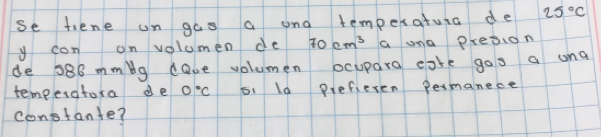 Se tiene un gas a una temperatura de 25°C
y con on volumen de 70 cm³ a una presion
de 586 mmHg dQue volumen ocupara este gas a una
temperatura de 0°C si la prefieren permanece
constante?